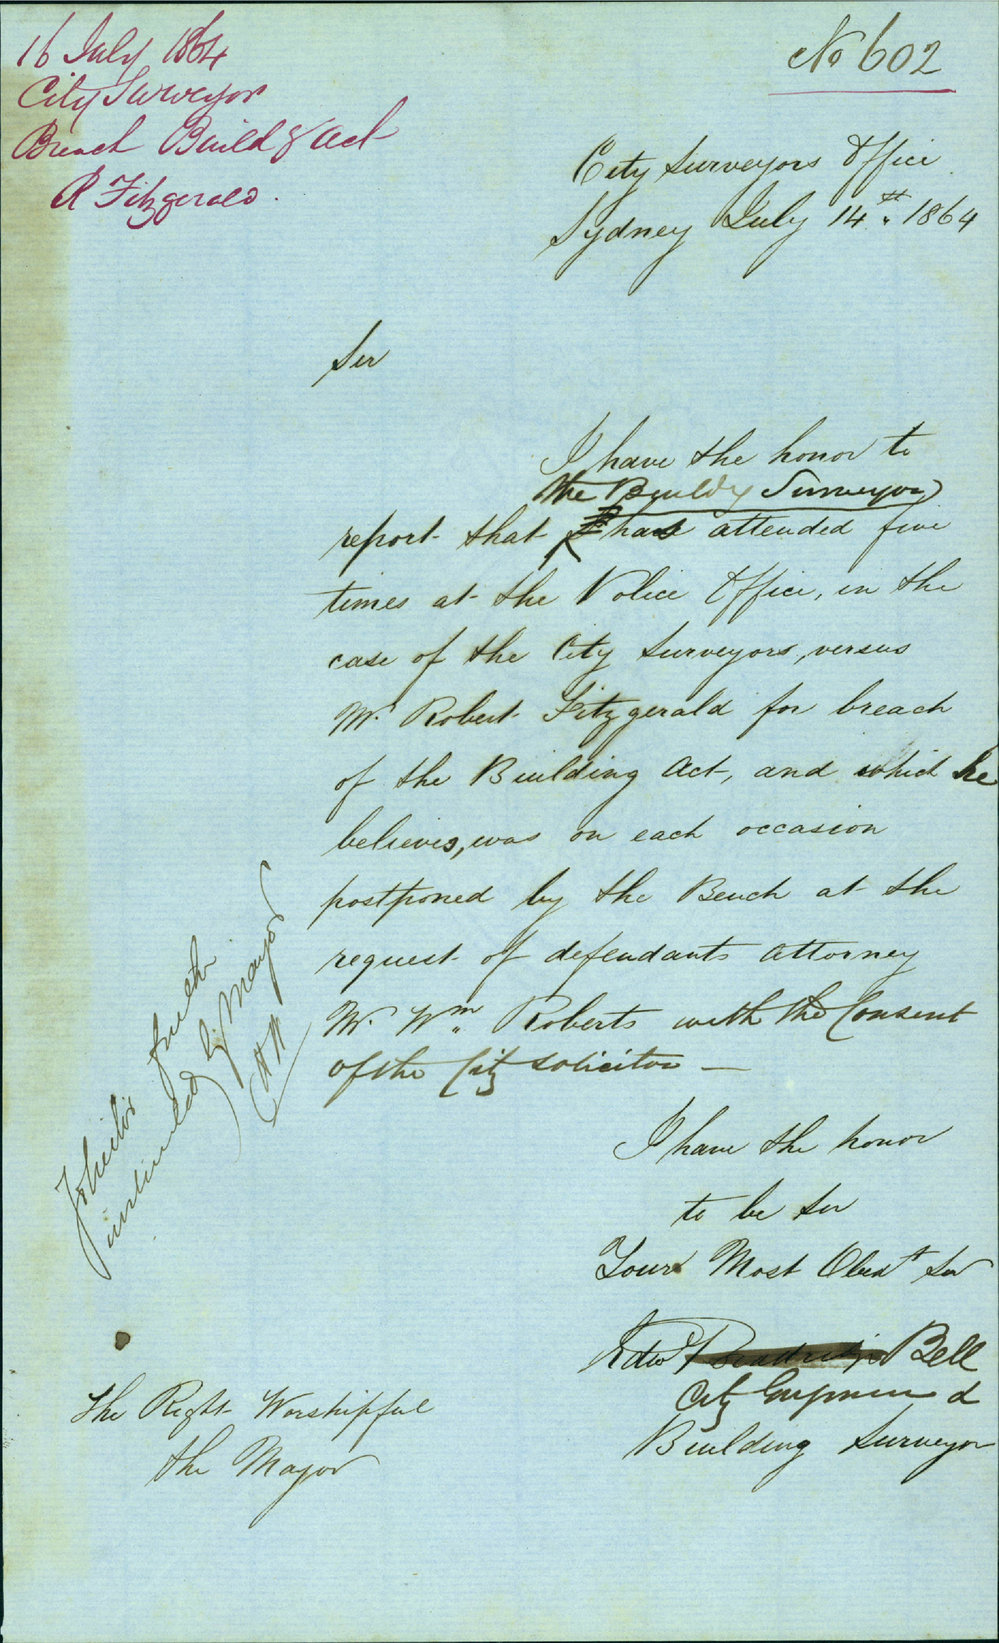 16 July 1864
City Surveyor
Breach Build g Act
R Fitzgerald.
No 602
City Surveyors Office
Sydney July 14th. 1864
Sir
I have the honor to
the Buildg Surveyor
report that has attended five
times at the Police Office, in the
case of the City Surveyors, versus
Mr. Robert Fitzgerald for breach
of the Building Act, and which he
believes, was on each occasion
postponed by the Bench at the
request of defendants Attorney
Mr. Wm. Roberts with the Consent
of the City Solicitor —
I have the honor
to be Sir
Yours Most Obedt Ser
Edwd Bell
City Engineer &
Building Surveyor
The Right Worshipful
the Mayor
by Mayor